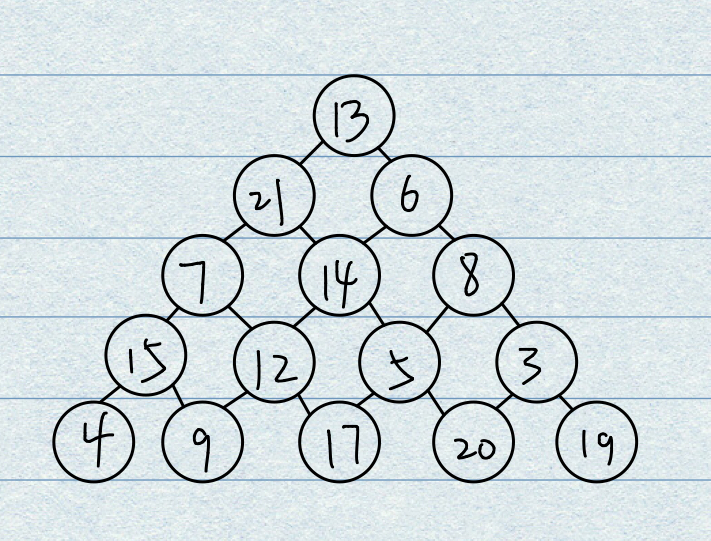 13
21 6
7 14 8
15 12 5 3
4 9 17 20 19